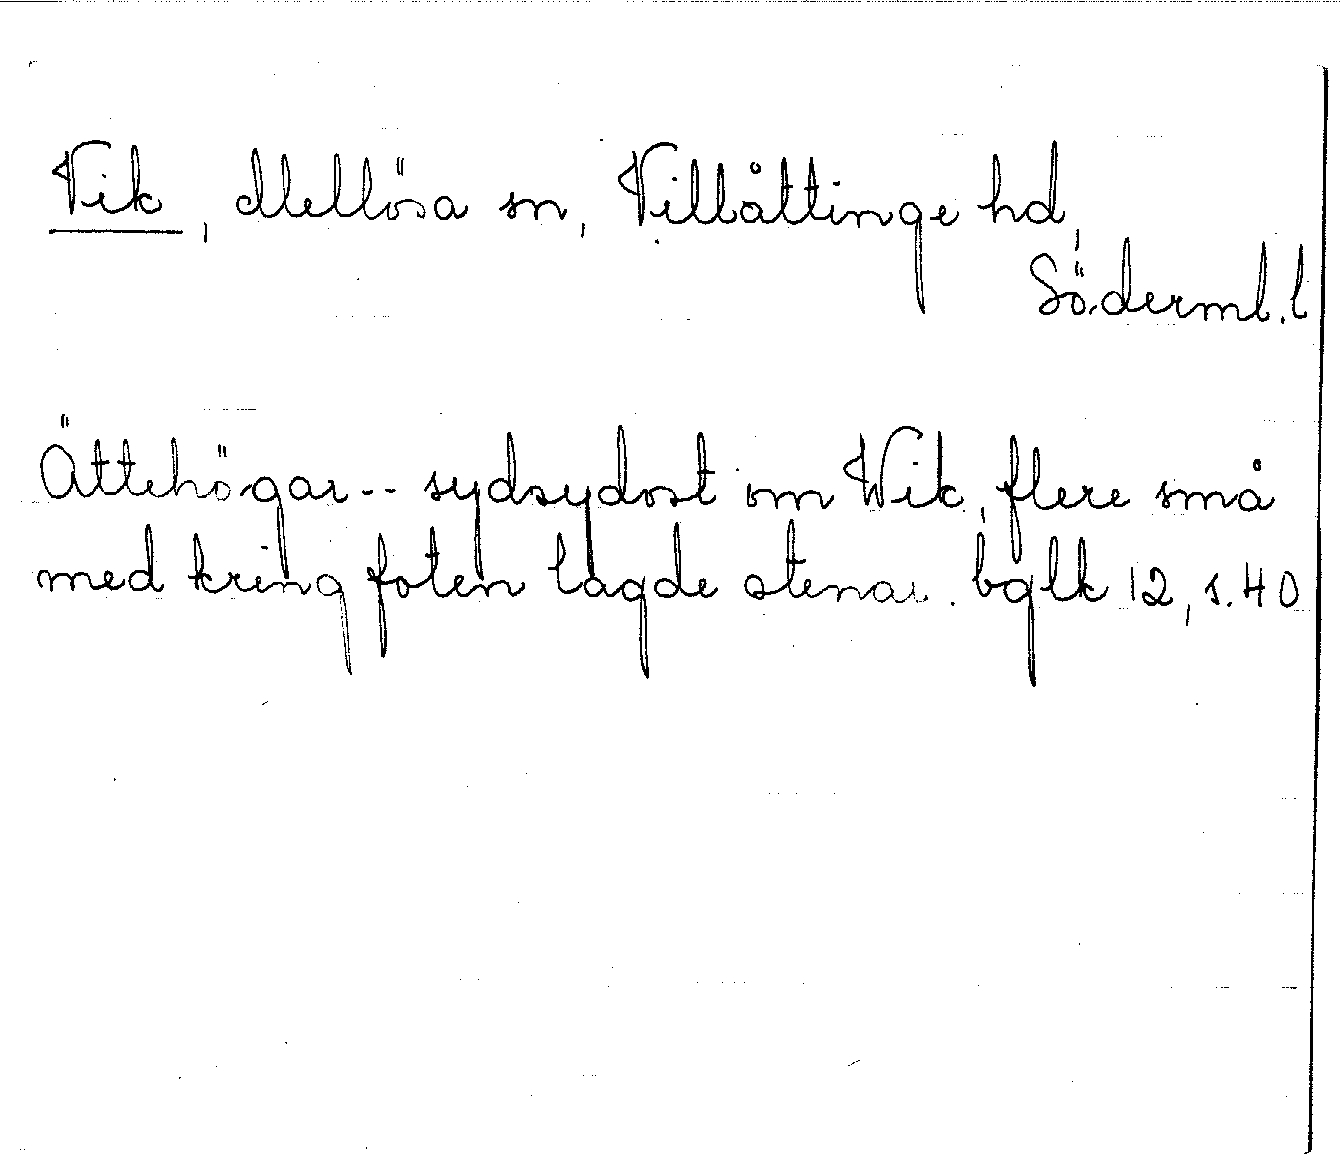 Vik, Mellösa sn, Villåttinge hd,
Söderml. l
Ättehögar -- sydsydost om Wik, flere små
med kring foten lagde stenar. bglk 12, s. 40